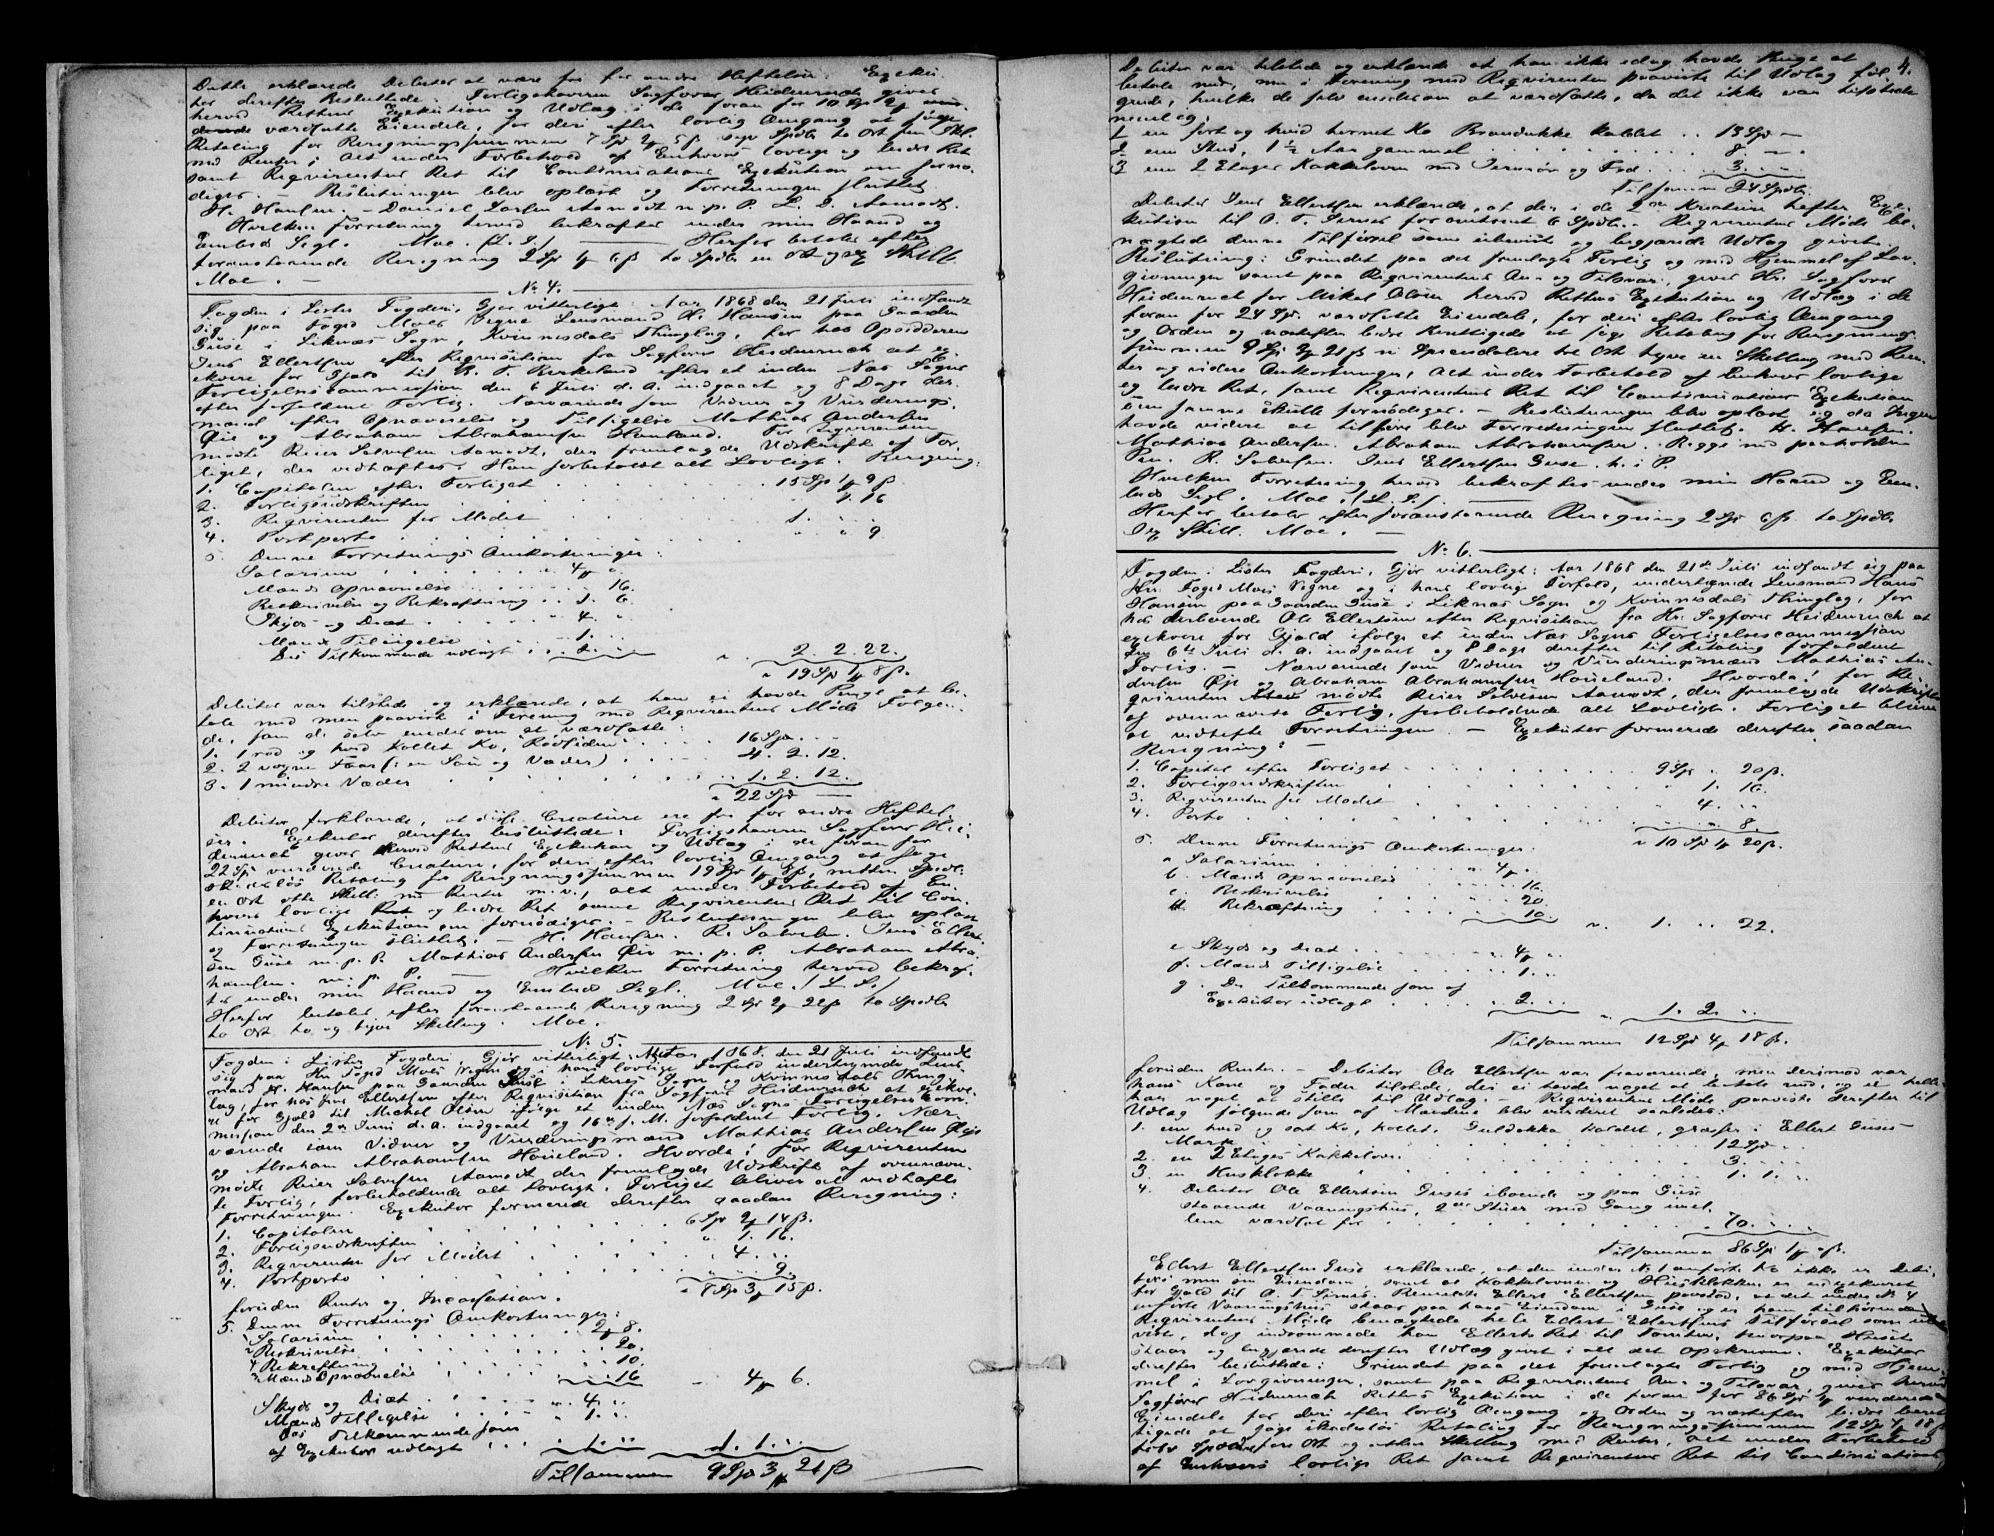 Dette erklærede Debitor at være fri for andre Heftelser. Exeku-
tor derefter besluttede: Forligshaveren Sagfører Heidenreich gives
herved Rettens Exekution og Udlæg i de foran for 10 Spd 2
værdsatte Eiendele, for deri efter lovlig Omgang at søge
Betaling for Regningssummen 7 Spd 2 5 β syv Spdlr to Ort fem Skl.
med Renter, Alt under Forbehold af Enhvers lovlige og bedre Ret
samt Reqvirentens Ret til Continuations Exekution om fornø-
diges. — Beslutningen blev oplæst og Forretningen sluttet.
H. Hansen. — Daniel Larsen Aamodt m. p. P. L. D. Aamodt.
Hvilken Forretning herved bekræftes under min Haand og
Embeds Segl. Moe. (L. S.) — Herfor betales efter
foranstaaende Regning 2 Spd 1 6 β to Spdlr en Ort og sex Skill.
Moe. —
No 4.
Fogden i Lister Fogderi, Gjør vitterligt: Aar 1868 den 21 Juli indfandt
sig paa Foged Moes Vegne Lensmand H. Hansen paa Gaarden
Guse i Liknæs Sogn, Kvinnesdals Thinglag, for hos Opsidderen
Jens Ellertsen efter Reqvisition fra Sagfører Heidenreich at ex-
ekvere for Gjæld til B. T. Kirkeland efter et inden Næs Sogns
Forligelsescommission den 6 Juli d. A. indgaaet og 8 Dage der-
efter forfaldent Forlig. Nærværende som Vidner og Vurderings-
mænd efter Opnævnelse og Tilsigelse Mathias Andersen
Øie og Abraham Abrahamsen Houeland. For Reqvirenten
mødte Reier Salvesen Aamodt, der fremlagde Udskrift af For-
liget, der vedhæftes. Han forbeholdt alt Lovligt. Beregning:
1. Capitalen efter Forliget . . . 15 Spd 1 9 β
2. Forligsudskriften . . . 1. 16
3. Reqvirenten for Mødet . . . 1. . .
4. Postporto . . . 9
5. Denne Forretnings Omkostninger:
Salarium . . . 4 .
Mænds Opnævnelse . . . 16.
Beskrivelse og Bekræftning . . 1. 6.
Skyds og Diæt . . . 4. .
Mænds Tilsigelse . . . 1. . .
Dis Tilkommende udlagt . . .
2. 2. 22.
19 Spd 1 8 β.
Debitor var tilstede og erklærede, at han ei havde Penge at be-
tale med men paaviste i Forening med Reqvirentens Møde Følgen-
de, som de selv enedes om at værdsætte:
1. 1 rød og hvid kollet Ko, Rødsiden . . 16 Spd . . .
2. 2 voxne Faar (: en Sau og Væder) . . . 4. 2. 12.
3. 1 mindre Væder . . . 1. 2. 12.
22 Spd —
Debitor forklarede, at disse Creature ere fri for andre Heftel-
ser. Exekutor derefter besluttede: Forligshaveren Sagfører Hei-
denreich gives herved Rettens Exekution og Udlæg i de foran for
22 Spd vurderede Creature, for deri efter lovlig Omgang at søge
skadesløs Betaling for Regningssummen 19 Spd 1 8 β, nitten Spdlr.
en Ort otte Skill. med Renter m. v., alt under Forbehold af En-
hvers lovlige og bedre Ret samt Reqvirentens Ret til Con-
tinuations Exekution om fornødiges. — Beslutningen blev oplæst
og Forretningen sluttet. — H. Hansen. R. Salvesen. Jens Ellert-
sen Guse m. p. P. Mathias Andersen Øie m. p. P. Abraham Abra-
hamsen. m. p. P. — Hvilken Forretning herved bekræf-
tes under min Haand og Embeds Segl. Moe. (L. S.)
Herfor betales efter foranstaaende Beregning 2 Spd 2 22 β to Spdlr
to Ort to og tyve Skilling. Moe.
No 5.
Fogden i Lister Fogderi, Gjør vitterligt: Aar 1868. den 21 Juli indfandt
sig paa Hr. Foged Moes Vegne og i hans lovlige Forfald undertegnede Lens-
mand H. Hansen paa Gaarden Guse i Liknæs Sogn og Kvinnesdals Thing-
lag, for hos Jens Ellertsen efter Reqvisition fra Sagfører Heidenreich at exekve-
re for Gjæld til Michel Olsen ifølge et inden Næs Sogns Forligelsescom-
mission den 2den Juni d. A. indgaaet og 16de s. M. forfaldent Forlig. Nær-
værende som Vidner og Vurderingsmænd Mathias Andersen Øie
og Abraham Abrahamsen Houeland. Hvorda: For Reqvirenten
mødte Reier Salvesen Aamodt der fremlagde Udskrift af ovennævn-
te Forlig, forbeholdende alt Lovligt. Forliget bliver at vedhæfte
Forretningen. Exekutor formerede derefter saadan Beregning:
1. Capitalen . . . 6 Spd 2 14 β.
2. Forligsudskriften . . . 1. 16.
3. Reqvirenten for Mødet . . . 4. . .
4. Postporto . . . 9.
8 Spd 3 15 β.
foruden Renter og Incassation.
5. Denne Forretnings Omkostninger:
Salarium . . . 2 8.
Beskrivelse . . . 20.
Bekræftning . . . 10.
Mænds Opnævnelse . . . 16
4 6.
Skyds og Diæt . . . 4. .
Mænds Tilsigelse . . . 1. .
Dis Tilkommende som
af Exekutor udlagt . . . 1. . . 1. 1. . .
Tilsammen 9 Spd 3 21 β
4.
Debitor var tilstede og erklærede at han ikke idag havde Penge at
betale med, men i Forening med Reqvirenten paaviste til Udlæg føl-
gende, hvilke de selv enedes om at værdsætte, da det ikke var tilstede
nemlig:
1 en sort og hvid hornet Ko Brandukke kaldet . . 13 Spd —
2 een Stud, 1 ½ Aar gammel . . . 8 — .
3 een 2 Etages Kakkelovn med Jernrør og Fod . . . 3. . .
Tilsammen 24 Spdlr.
Debitor Jens Ellertsen erklærede, at der i de 2de Kreature hefter Exe-
kution til A. T. Sirnes for omtrent 6 Spdlr. Reqvirentens Møde be-
nægtede denne Tilførsel som ubevist og begjærede Udlæg givet.
Beslutning: Grundet paa det fremlagte Forlig og med Hjemmel af Lov-
givningen samt paa Reqvirentens Ans- og Tilsvar, giver Hr. Sagfører
Heidenreich for Mikel Olsen herved Rettens Exekution og Udlæg i de
foran for 24 Spd. værdsatte Eiendele, for deri efter lovlig Omgang
og Orden og næstefter bedre Berettigede at søge Betaling for Regnings-
summen 9 Spd 3 21 β ni Speciedalere tre Ort tyve en Skilling med Ren-
ter og videre Omkostninger, Alt under Forbehold af Enhvers lovlige
og bedre Ret, samt Reqvirentens Ret til Continuations Exekution
om samme skulle fornødiges. — Beslutningen blev oplæst og da Ingen
havde videre at tilføre blev Forretningen sluttet. H. Hansen.
Mathias Andersen. Abraham Abrahamsen. Begge med paaholden
Pen. R. Salvesen. Jens Ellertsen Guse. h. i P.
Hvilken Forretning herved bekræftes under min Haand og Em-
beds Segl. Moe. (L. S.) —
Herfor betales efter foranstaaende Beregning 2 Spd 6 β. to Spdlr.
sex Skill. Moe. —
No 6.
Fogden i Lister Fogderi, Gjør vitterligt: Aar 1868 den 21de Juli indfandt sig paa
Hr. Foged Moes Vegne og i hans lovlige Forfald, undertegnede Lensmand Hans
Hansen paa Gaarden Guse i Liknæs Sogn og Kvinnesdals Thinglag, for
hos derboende Ole Ellertsen efter Reqvisition fra Hr. Sagfører Heidenreich at
exekvere for Gjæld ifølge et inden Næs Sogns Forligelsescommission
den 6te Juli d. A. indgaaet og 8 Dage derefter til Betaling forfaldent
Forlig. — Nærværende som Vidner og Vurderingsmænd Mathias An-
dersen Øie og Abraham Abrahamsen Houeland. Hvorda: for Re-
qvirenten mødte Reier Salvesen Aamodt, der fremlagde Udskrift
af ovennævnte Forlig, forbeholdende alt Lovligt. Forliget bliver
at vedhefte Forretningen. — Exekutor formerede derefter saadan
Beregning: —
1. Capital efter Forliget . . . 9 Spd . 20 β.
2. Forligsudskriften . . . 1. 16.
3. Reqvirenten for Mødet . . . 4. . .
4. Porto . . . 8.
10 Spd 1 20 β.
5. Denne Forretnings Omkostninger:
a Salarium . . . 4 .
b. Mænds Opnævnelse . . . 16.
c. Beskrivelse . . . 20.
d. Bekræftning . . . 10.
1. . . 22.
e Skyds og Diæt . . . 4 .
f. Mænds Tilsigelse . . . 1. .
g. Dis Tilkommende som af
Exekutor udlagt . . . 2. . .
1. 2. . .
Tilsammen 12 Spd 4 18 β.
foruden Renter. — Debitor Ole Ellertsen var fraværende, men derimod var
hans Kone og Fader tilstede, der ei havde noget at betale med, og ei heller
har noget at stille til Udlæg. — Reqvirentens Møde paaviste derefter til
Udlæg følgende som af Mændene blev vurderet saaledes:
1. een hvid og sort Ko, kollet, Guldokka kaldet, græsser i Ellert Guses
Mark . . . 12 Spd . .
2. en 2 Etages Kakkelovn . . . 3. . .
3. en Husklokke . . . 1. 1. .
4. Debitor Ole Ellertsen Guses iboende og paa Guse
staaende Vaaningshus, 2de Stuer med Gang imel-
lem værdsat for . . . 70. . .
Tilsammen 86 Spd 1 . β.
Ellert Ellertsen Guse erklærede, at den under No 1 anførte Ko ikke er Debi-
tors men om Eiendom, samt at Kakkelovnen og Husklokken er udexekveret
for Gjæld til A. T. Sirnes. Bemeldte Ellert Ellertsen paastod, at det under No 4
anførte Vaaningshus staar paa hans Eiendom i Guse og er ham tilhørende.
Reqvirentens Møde benægtede hele Ellert Ellertsens Tilførsel som ube-
vist, dog indrømmede han Ellerts Ret til Tomten, hvorpaa Huset
staar og begjærede derefter Udlæg givet i alt det opskrevne. Exekutor
derefter besluttede: Grundet paa det fremlagte Forlig og med Hjem-
mel i Lovgivningen, samt paa Reqvirentens Ans- og Tilsvar, giver herved
Sagfører Heidenreich Rettens Exekution i de foran for 86 Spd 1 vurderede
Eiendele for deri efter lovlig Omgang og Orden og næstefter bedre beret-
tigede at søge skadesløs Betaling for Beregningssummen 12 Spd 4 18 β
tolv Spdlr fire Ort og atten Skilling med Renter, Alt under Forbehold
af Enhvers lovlige Ret samt Reqvirentens Ret til Continuations